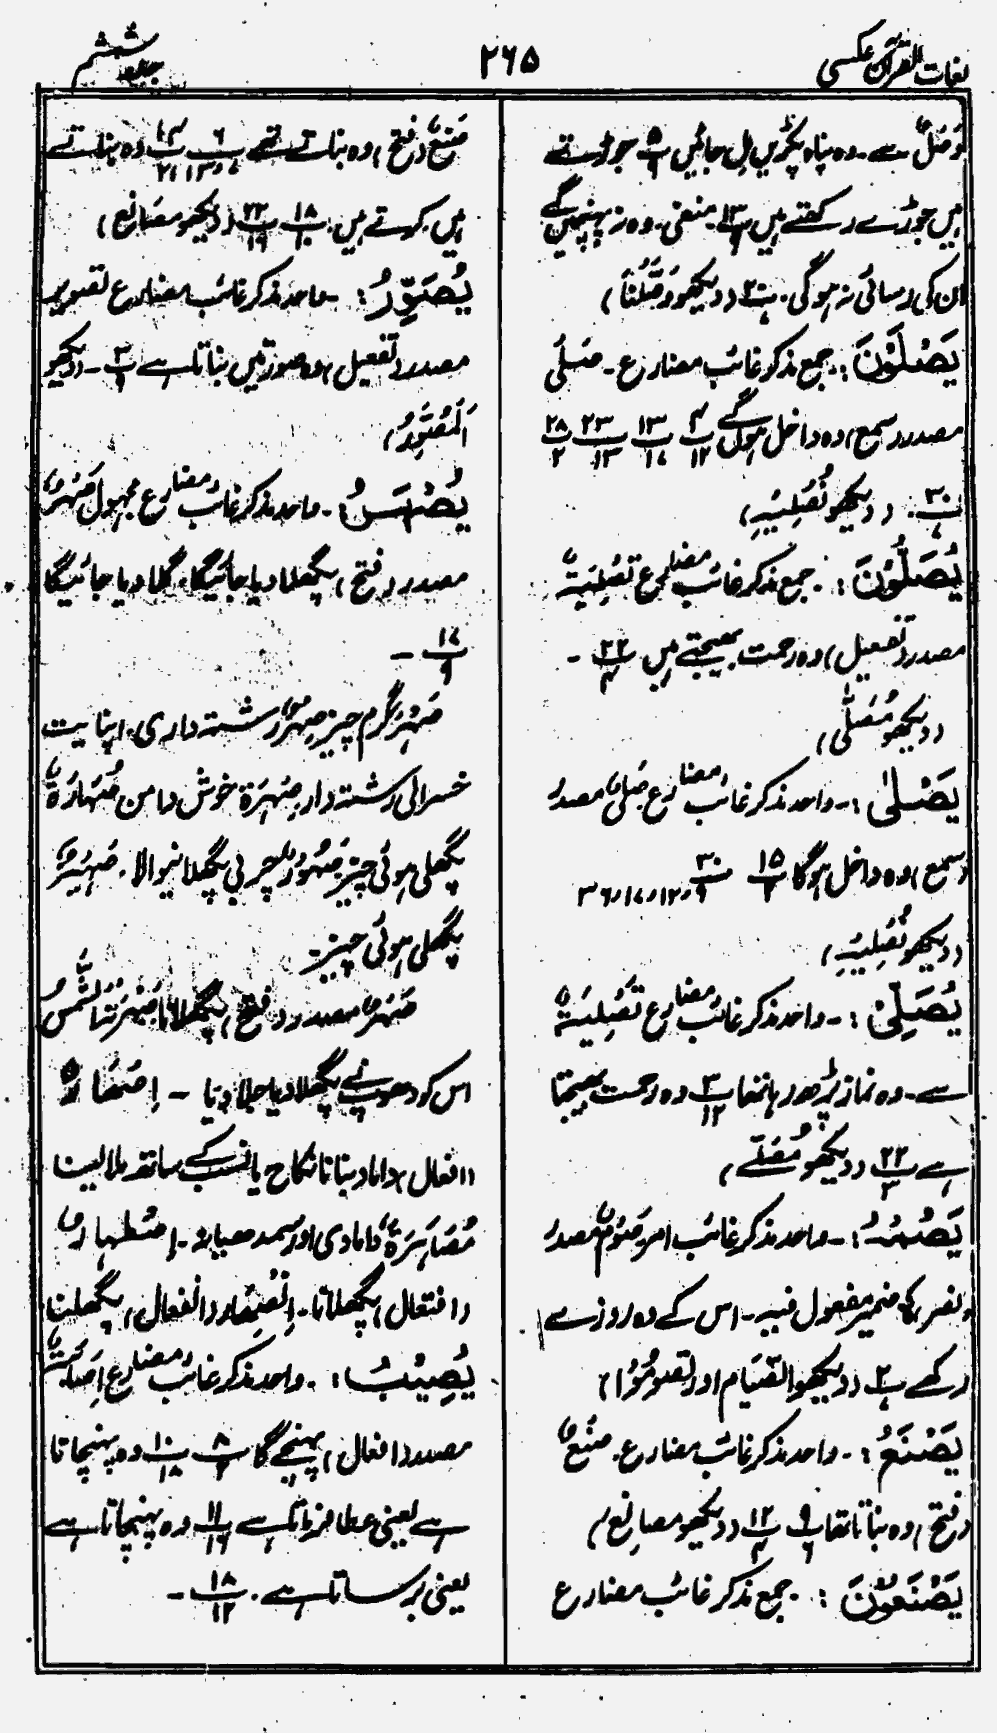 لغات القرآن عکسی
۲۶۵
جلد ششم
وَصْلٌ سے۔ وہ پناہ پکڑیں مل جائیں پ ۵/۹ جوڑتے
ہیں جوڑے رکھتے ہیں پ ۱۳/۹ منفی۔ وہ نہ پہنچیں گے
ان کی رسائی نہ ہوگی۔ (دیکھو وَصَّلْنَا)
یَصْلَوْنَ: جمع مذکر غائب مضارع۔ صَلْیٌ
مصدر (سمع) وہ داخل ہوں گے ۴/۱۲ ۱۳/۱۶ ۲۳/۱۳ ۲۸/۲
۳۰/۷۔ (دیکھو تَصْلِیَۃ)
یُصَلُّوْنَ: جمع مذکر غائب مضارع تَصْلِیَۃٌ
مصدر (تفعیل) وہ رحمت بھیجتے ہیں ۲۲/۴ ۔
(دیکھو مُصَلّٰی)
یَصْلٰی: ۔ واحد مذکر غائب مضارع صَلْیٌ مصدر
(سمع) وہ داخل ہوگا ۱۵/۲ ۳۰/۹، ۱۲، ۱۷، ۳۶
(دیکھو تَصْلِیَۃ)
یُصَلِّیْ: ۔ واحد مذکر غائب مضارع تَصْلِیَۃٌ
سے۔ وہ نماز پڑھ رہا تھا پ ۳/۱۲ وہ رحمت بھیجتا
ہے پ ۲۲/۳ (دیکھو مُصَلّٰے)
یَصُمْہُ: ۔ واحد مذکر غائب امر صَوْمٌ مصدر
(نصر) ہٗ ضمیر مفعول فیہ۔ اس کے وہ روزے
رکھے پ ۲/۷ (دیکھو الصِّیَام اور تَصُوْمُوْا)
یَصْنَعُ: ۔ واحد مذکر غائب مضارع۔ صَنْعٌ
(فتح) وہ بناتا تھا پ ۹/۶ پ ۱۲/۴ (دیکھو مصانع)
یَصْنَعُوْنَ: ۔ جمع مذکر غائب مضارع
صَنْعٌ (فتح) وہ بناتے تھے پ ۶ وہ بناتے
ہیں۔ کرتے ہیں۔ پ ۱۸/۱۰ پ ۲۲/۱۴ (دیکھو مَصَانِع)
یُصَوِّرُ: ۔ واحد مذکر غائب مضارع تصویر
مصدر (تفعیل) وہ صورتیں بناتا ہے پ ۳/۹ ۔ (دیکھو
اَلْمُصَوِّرُ)
یُصْہَرُ: ۔ واحد مذکر غائب مضارع مجہول صَہْرٌ
مصدر (فتح) پگھلا دیا جائیگا۔ گلا دیا جائیگا
۱۷/۹ ۔
صَہْرٌ گرم چیز صِہْرٌ رشتہ داری۔ اپنایت
خسرالی رشتہ دار صِہْرَۃ خوش دامن صُہَارَۃٌ
پگھلی ہوئی چیز صَہُوْرٌ چربی پگھلانیوالا۔ صَہِیْرٌ
پگھلی ہوئی چیز۔
صَہْرٌ مصدر (فتح) پگھلانا صَہَرَتْہُ الشَّمْسُ
اس کو دھوپ نے پگھلا دیا جلا دیا ۔ اِصْہَارٌ
(افعال) داماد بننا نکاح یا نسب کے ساتھ ملالینا
مُصَاہَرَۃٌ دامادی اور سمدھیانہ۔ اِصْطِہَارٌ
(افتعال) پگھلانا۔ اِنْصِہَار (انفعال) پگھلنا
یُصِیْبُ: ۔ واحد مذکر غائب مضارع اِصَابَۃٌ
مصدر (افعال) پہنچے گا پ ۸/۲ پ ۱۰/۱۸ وہ پہنچاتا
ہے یعنی عطا فرماتا ہے پ ۱۱/۱۶ وہ پہنچاتا ہے
یعنی برساتا ہے۔ ۱۸/۱۲ ۔